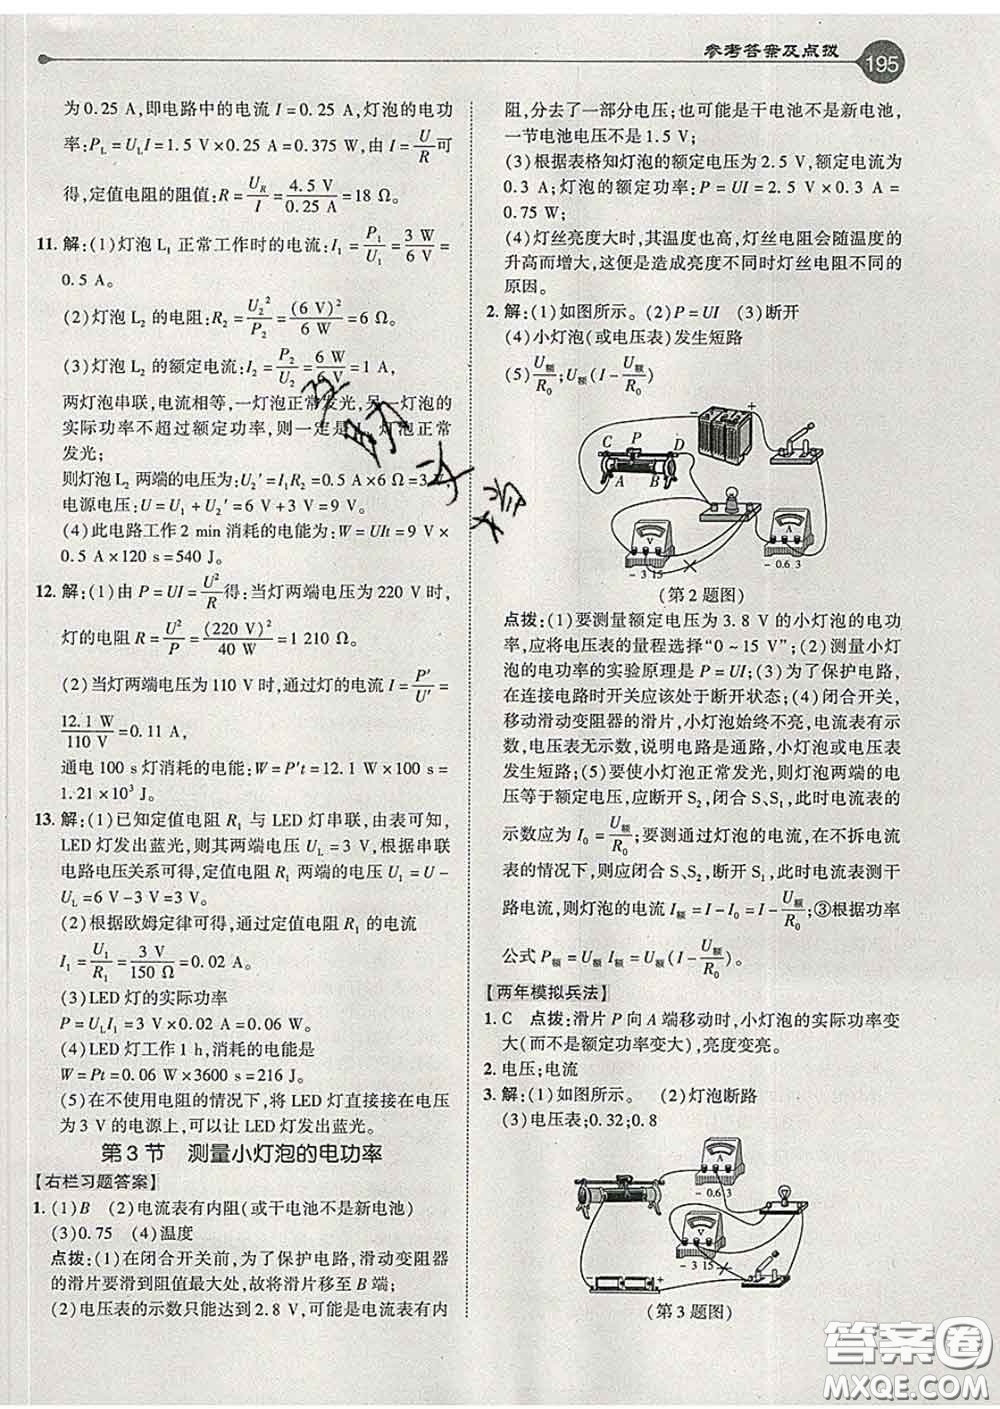 参考答案及点拨
195
为0.25 A,即电路中的电流 I=0.25 A,灯泡的电功
率:P_L=U_LI=1.5 V×0.25 A=0.375 W,由 I=U/R可
得,定值电阻的阻值:R=U_R/I=4.5 V/0.25 A=18 Ω。
11. 解:(1)灯泡 L₁ 正常工作时的电流:I₁=P₁/U₁=3 W/6 V=
0.5 A。
(2)灯泡 L₂ 的电阻:R₂=U₂²/P₂=(6 V)²/6 W=6 Ω。
(3)灯泡 L₂ 的额定电流:I₂=P₂/U₂=6 W/6 V=1 A,
两灯泡串联,电流相等,一灯泡正常发光,另一灯泡的
实际功率不超过额定功率,则一定是 灯泡正常
发光;
则灯泡 L₂ 两端的电压为:U₂′=I₁R₂=0.5 A×6 Ω=3 V,
电源电压:U=U₁+U₂′=6 V+3 V=9 V。
(4)此电路工作2 min 消耗的电能为:W=UIt=9 V×
0.5 A×120 s=540 J。
12. 解:(1)由 P=UI=U²/R得:当灯两端电压为220 V时,
灯的电阻 R=U²/P=(220 V)²/40 W=1 210 Ω。
(2)当灯两端电压为110 V时,通过灯的电流 I=P′/U′=
12.1 W/110 V=0.11 A,
通电100 s灯消耗的电能:W=P′t=12.1 W×100 s=
1.21×10³ J。
13. 解:(1)已知定值电阻 R₁ 与 LED 灯串联,由表可知,
LED灯发出蓝光,则其两端电压 U_L=3 V,根据串联
电路电压关系可得,定值电阻 R₁ 两端的电压 U₁=U-
U_L=6 V-3 V=3 V。
(2)根据欧姆定律可得,通过定值电阻 R₁ 的电流
I₁=U₁/R₁=3 V/150 Ω=0.02 A。
(3)LED 灯的实际功率
P=U_LI₁=3 V×0.02 A=0.06 W。
(4)LED 灯工作1 h,消耗的电能是
W=Pt=0.06 W×3600 s=216 J。
(5)在不使用电阻的情况下,将 LED 灯直接接在电压
为3 V的电源上,可以让 LED灯发出蓝光。
第3节 测量小灯泡的电功率
【右栏习题答案】
1. (1)B (2)电流表有内阻(或干电池不是新电池)
(3)0.75 (4)温度
点拨:(1)在闭合开关前,为了保护电路,滑动变阻器
的滑片要滑到阻值最大处,故将滑片移至 B 端;
(2)电压表的示数只能达到2.8 V,可能是电流表有内
阻,分去了一部分电压;也可能是干电池不是新电池,
一节电池电压不是1.5 V;
(3)根据表格知灯泡的额定电压为2.5 V,额定电流为
0.3 A;灯泡的额定功率:P=UI=2.5 V×0.3 A=
0.75 W;
(4)灯丝亮度大时,其温度也高,灯丝电阻会随温度的
升高而增大,这便是造成亮度不同时灯丝电阻不同的
原因。
2. 解:(1)如图所示。 (2)P=UI (3)断开
(4)小灯泡(或电压表)发生短路
(5)U额/R₀;U额(I-U额/R₀)
- +
C P D
A B
V
A
- 3 15
- 0.6 3
(第2题图)
点拨:(1)要测量额定电压为3.8 V的小灯泡的电功
率,应将电压表的量程选择“0~15 V”;(2)测量小灯
泡的电功率的实验原理是 P=UI;(3)为了保护电路,
在连接电路时开关应该处于断开状态;(4)闭合开关,
移动滑动变阻器的滑片,小灯泡始终不亮,电流表有示
数,电压表无示数,说明电路是通路,小灯泡或电压表
发生短路;(5)要使小灯泡正常发光,则灯泡两端的电
压等于额定电压,应断开 S₂,闭合 S、S₁,此时电流表的
示数应为 I₀=U额/R₀;要测通过灯泡的电流,在不拆电流
表的情况下,则应闭合 S、S₂,断开 S₁,此时电流表测干
路电流,则灯泡的电流 I额=I-I₀=I-U额/R₀;③根据功率
公式 P额=U额I额=U额(I-U额/R₀)。
【两年模拟兵法】
1. C 点拨:滑片 P 向 A 端移动时,小灯泡的实际功率变
大(而不是额定功率变大),亮度变亮。
2. 电压;电流
3. 解:(1)如图所示。 (2)灯泡断路
(3)电压表;0.32;0.8
A
- 0.6 3
V
- 3 15
- +
(第3题图)
答案圈
MXQE.COM